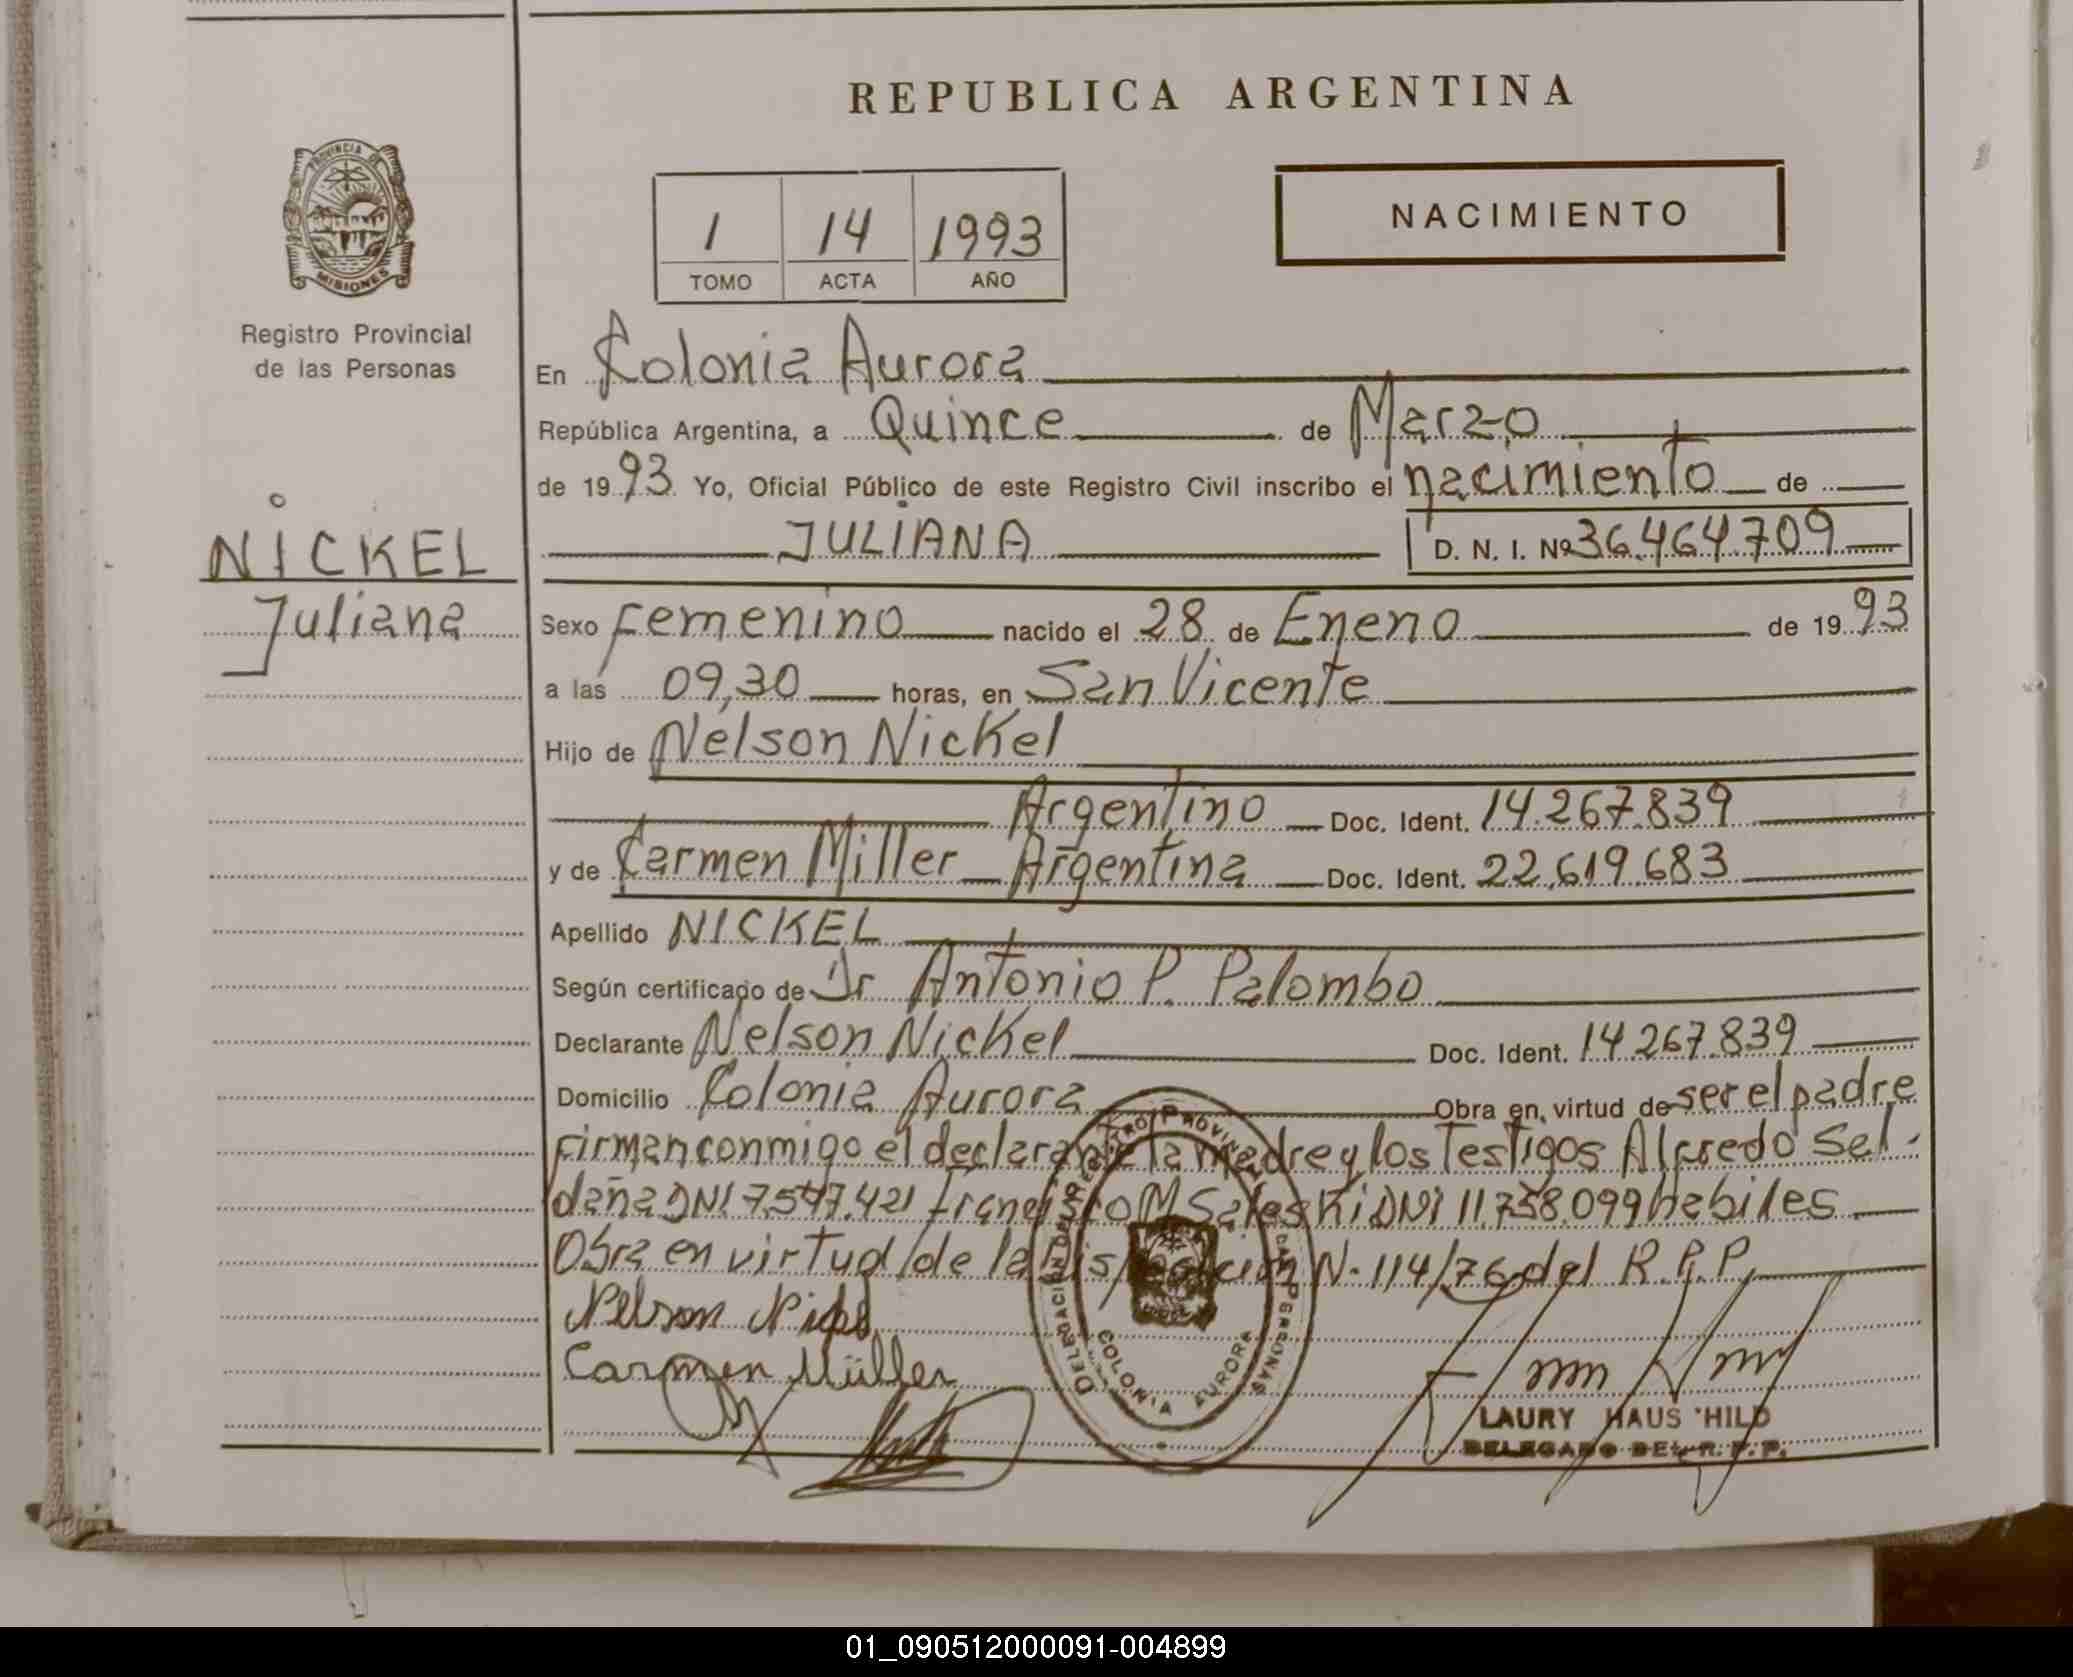 REPUBLICA ARGENTINA
PROVINCIA DE
MISIONES
Registro Provincial
de las Personas
1 14 1993
TOMO ACTA AÑO
NACIMIENTO
En Colonia Aurora
República Argentina, a Quince de Marzo
de 1993 Yo, Oficial Público de este Registro Civil inscribo el nacimiento de
JULIANA D. N. I. Nº 36.464.709
NICKEL
Juliana
Sexo Femenino nacido el 28 de Enero de 1993
a las 09,30 horas, en San Vicente
Hijo de Nelson Nickel
Argentino Doc. Ident. 14.267.839
y de Carmen Miller Argentina Doc. Ident. 22.619.683
Apellido NICKEL
Según certificado de Dr Antonio P. Palombo
Declarante Nelson Nickel Doc. Ident. 14 267.839
Domicilio Colonia Aurora Obra en virtud de ser el padre
firman conmigo el declarante la madre y los Testigos Alfredo Sal-
daña DNI 7.547.421 M Saleski DNI 11.758.099 habiles
Obra en virtud de la Disposicion N. 114/76 del R.P.P.
Nelson
Carmen Müller
DELEGACION DEL REGISTRO PROVINCIAL DE LAS PERSONAS
COLONIA AURORA
LAURY HAUS HILD
DELEGADO DEL R. P. P.
01_090512000091-004899